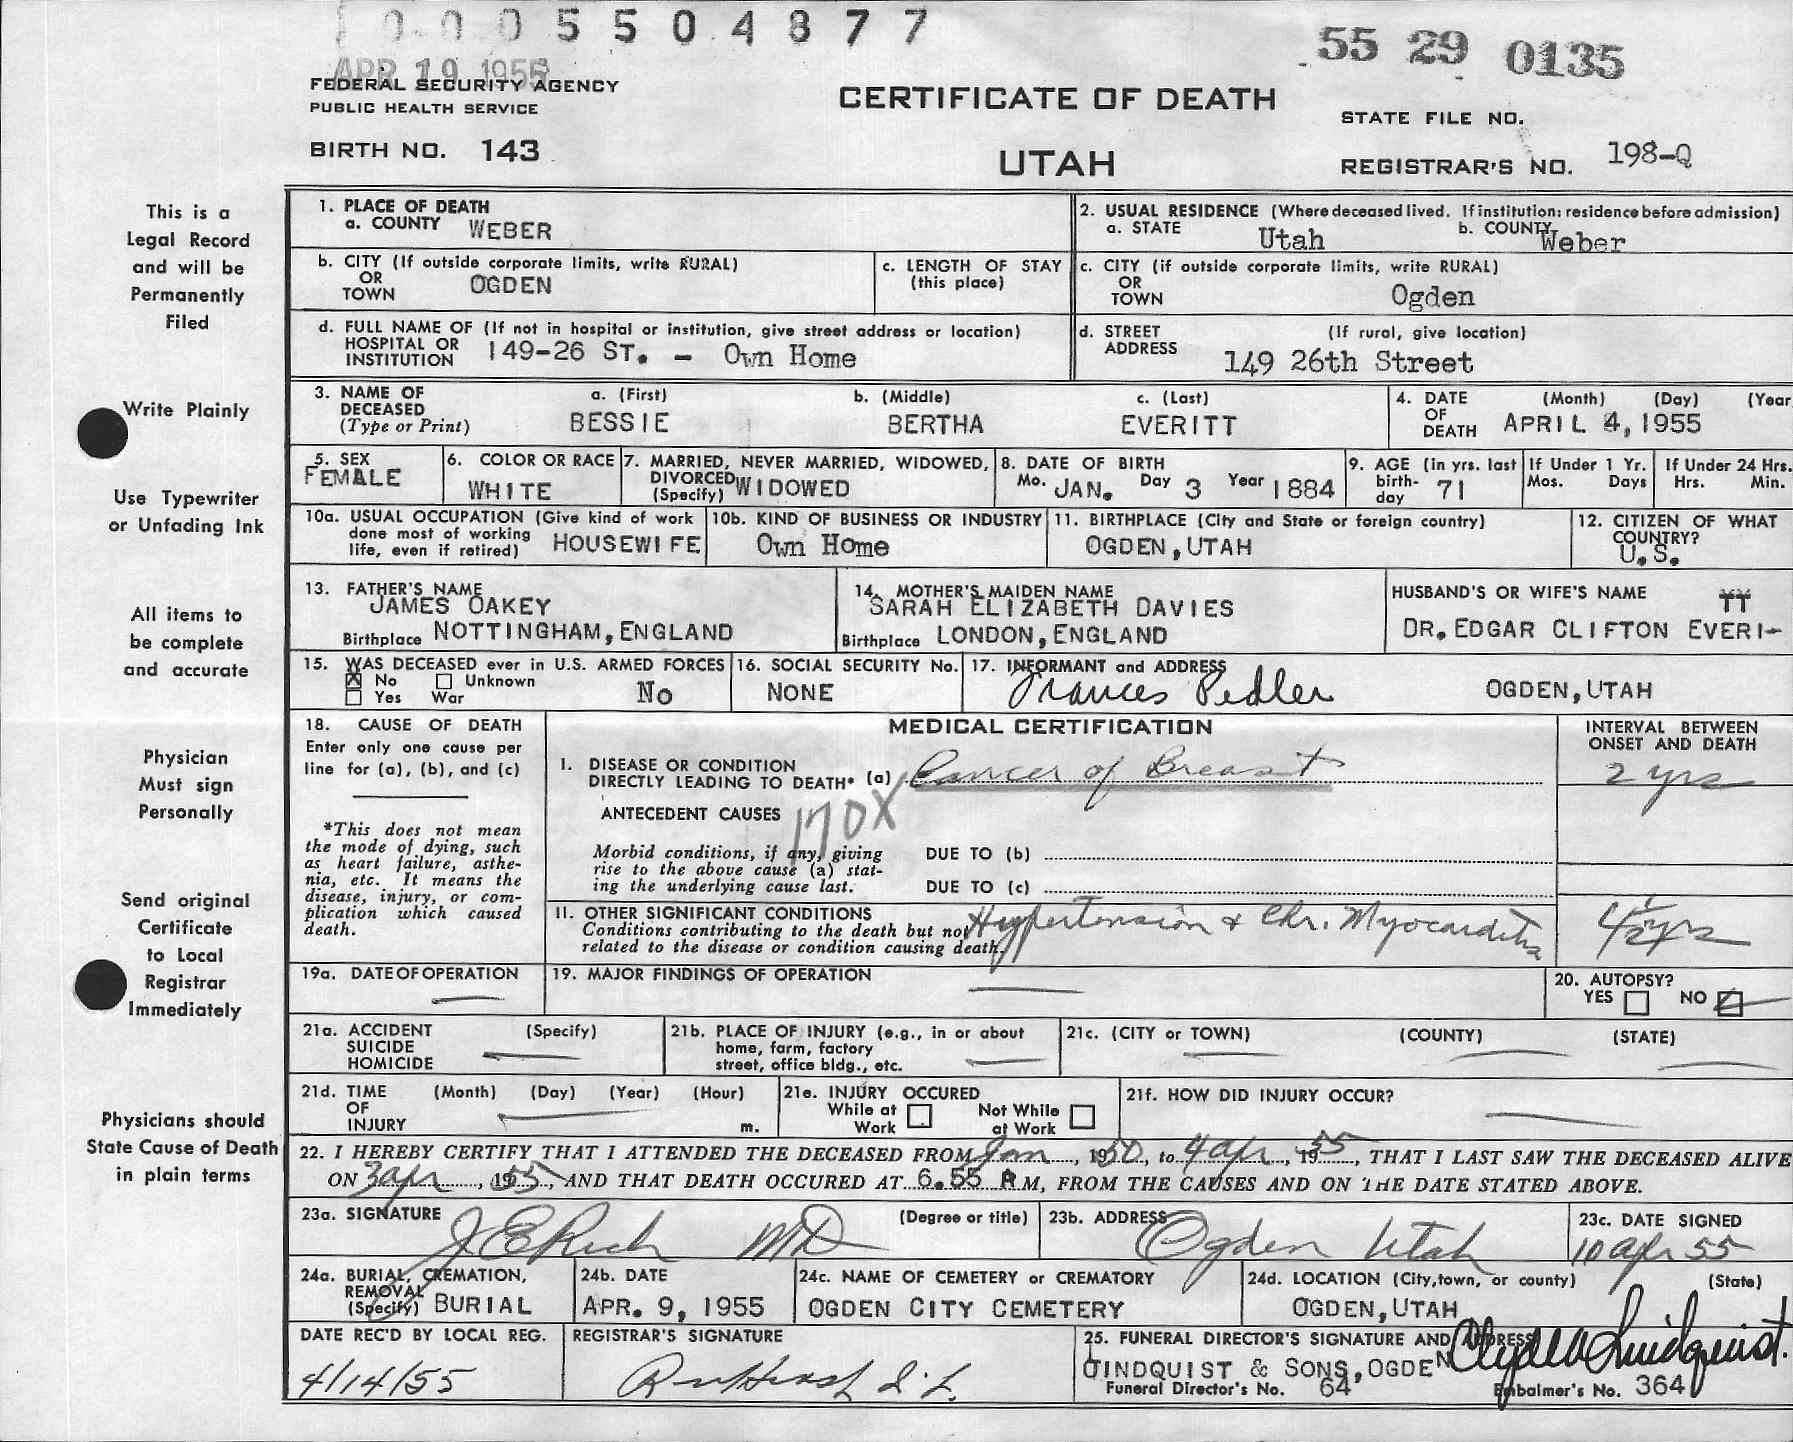 0005504877
55 29 0135
APR 19 1955
FEDERAL SECURITY AGENCY
PUBLIC HEALTH SERVICE
CERTIFICATE OF DEATH
STATE FILE NO.
BIRTH NO. 143
UTAH
REGISTRAR'S NO. 198-Q
This is a
Legal Record
and will be
Permanently
Filed
Write Plainly
Use Typewriter
or Unfading Ink
All items to
be complete
and accurate
Physician
Must sign
Personally
Send original
Certificate
to Local
Registrar
Immediately
Physicians should
State Cause of Death
in plain terms
1. PLACE OF DEATH
a. COUNTY WEBER
2. USUAL RESIDENCE (Where deceased lived. If institution: residence before admission)
a. STATE Utah b. COUNTY Weber
b. CITY (If outside corporate limits, write RURAL)
OR
TOWN OGDEN
c. LENGTH OF STAY
(this place)
c. CITY (if outside corporate limits, write RURAL)
OR
TOWN Ogden
d. FULL NAME OF (If not in hospital or institution, give street address or location)
HOSPITAL OR
INSTITUTION 149-26 ST. - Own Home
d. STREET (If rural, give location)
ADDRESS 149 26th Street
3. NAME OF
DECEASED
(Type or Print)
a. (First) b. (Middle) c. (Last)
BESSIE BERTHA EVERITT
4. DATE (Month) (Day) (Year
OF
DEATH APRIL 4, 1955
5. SEX
FEMALE
6. COLOR OR RACE
WHITE
7. MARRIED, NEVER MARRIED, WIDOWED,
DIVORCED
(Specify) WIDOWED
8. DATE OF BIRTH
Mo. JAN. Day 3 Year 1884
9. AGE (In yrs. last
birth-
day 71
If Under 1 Yr.
Mos. Days
If Under 24 Hrs.
Hrs. Min.
10a. USUAL OCCUPATION (Give kind of work
done most of working
life, even if retired) HOUSEWIFE
10b. KIND OF BUSINESS OR INDUSTRY
Own Home
11. BIRTHPLACE (City and State or foreign country)
OGDEN, UTAH
12. CITIZEN OF WHAT
COUNTRY?
U.S.
13. FATHER'S NAME
JAMES OAKEY
Birthplace NOTTINGHAM, ENGLAND
14. MOTHER'S MAIDEN NAME
SARAH ELIZABETH DAVIES
Birthplace LONDON, ENGLAND
HUSBAND'S OR WIFE'S NAME TT
DR. EDGAR CLIFTON EVERI-
15. WAS DECEASED ever in U.S. ARMED FORCES
No Unknown
Yes War No
16. SOCIAL SECURITY No.
NONE
17. INFORMANT and ADDRESS
Frances Pedler OGDEN, UTAH
18. CAUSE OF DEATH
Enter only one cause per
line for (a), (b), and (c)
*This does not mean
the mode of dying, such
as heart failure, asthe-
nia, etc. It means the
disease, injury, or com-
plication which caused
death.
MEDICAL CERTIFICATION
INTERVAL BETWEEN
ONSET AND DEATH
I. DISEASE OR CONDITION
DIRECTLY LEADING TO DEATH* (a) Cancer of Breast 2 yrs
ANTECEDENT CAUSES 170X
Morbid conditions, if any, giving
rise to the above cause (a) stat-
ing the underlying cause last.
DUE TO (b)
DUE TO (c)
II. OTHER SIGNIFICANT CONDITIONS
Conditions contributing to the death but not
related to the disease or condition causing death.
Hypertension & Chr. Myocarditis 4½ yrs
19a. DATE OF OPERATION
19. MAJOR FINDINGS OF OPERATION
20. AUTOPSY?
YES NO
21a. ACCIDENT (Specify)
SUICIDE
HOMICIDE
21b. PLACE OF INJURY (e.g., in or about
home, farm, factory
street, office bldg., etc.
21c. (CITY or TOWN) (COUNTY) (STATE)
21d. TIME (Month) (Day) (Year) (Hour)
OF
INJURY m.
21e. INJURY OCCURED
While at Work Not While at Work
21f. HOW DID INJURY OCCUR?
22. I HEREBY CERTIFY THAT I ATTENDED THE DECEASED FROM Jan, 1950, to 4 apr, 1955, THAT I LAST SAW THE DECEASED ALIVE
ON 3 apr, 1955, AND THAT DEATH OCCURED AT 6.55 A M, FROM THE CAUSES AND ON THE DATE STATED ABOVE.
23a. SIGNATURE (Degree or title)
J E Rich MD
23b. ADDRESS
Ogden Utah
23c. DATE SIGNED
10 apr 55
24a. BURIAL, CREMATION,
REMOVAL
(Specify) BURIAL
24b. DATE
APR. 9, 1955
24c. NAME OF CEMETERY or CREMATORY
OGDEN CITY CEMETERY
24d. LOCATION (City, town, or county) (State)
OGDEN, UTAH
DATE REC'D BY LOCAL REG.
4/14/55
REGISTRAR'S SIGNATURE
25. FUNERAL DIRECTOR'S SIGNATURE AND ADDRESS
LINDQUIST & SONS, OGDEN
Funeral Director's No. 64 Embalmer's No. 364